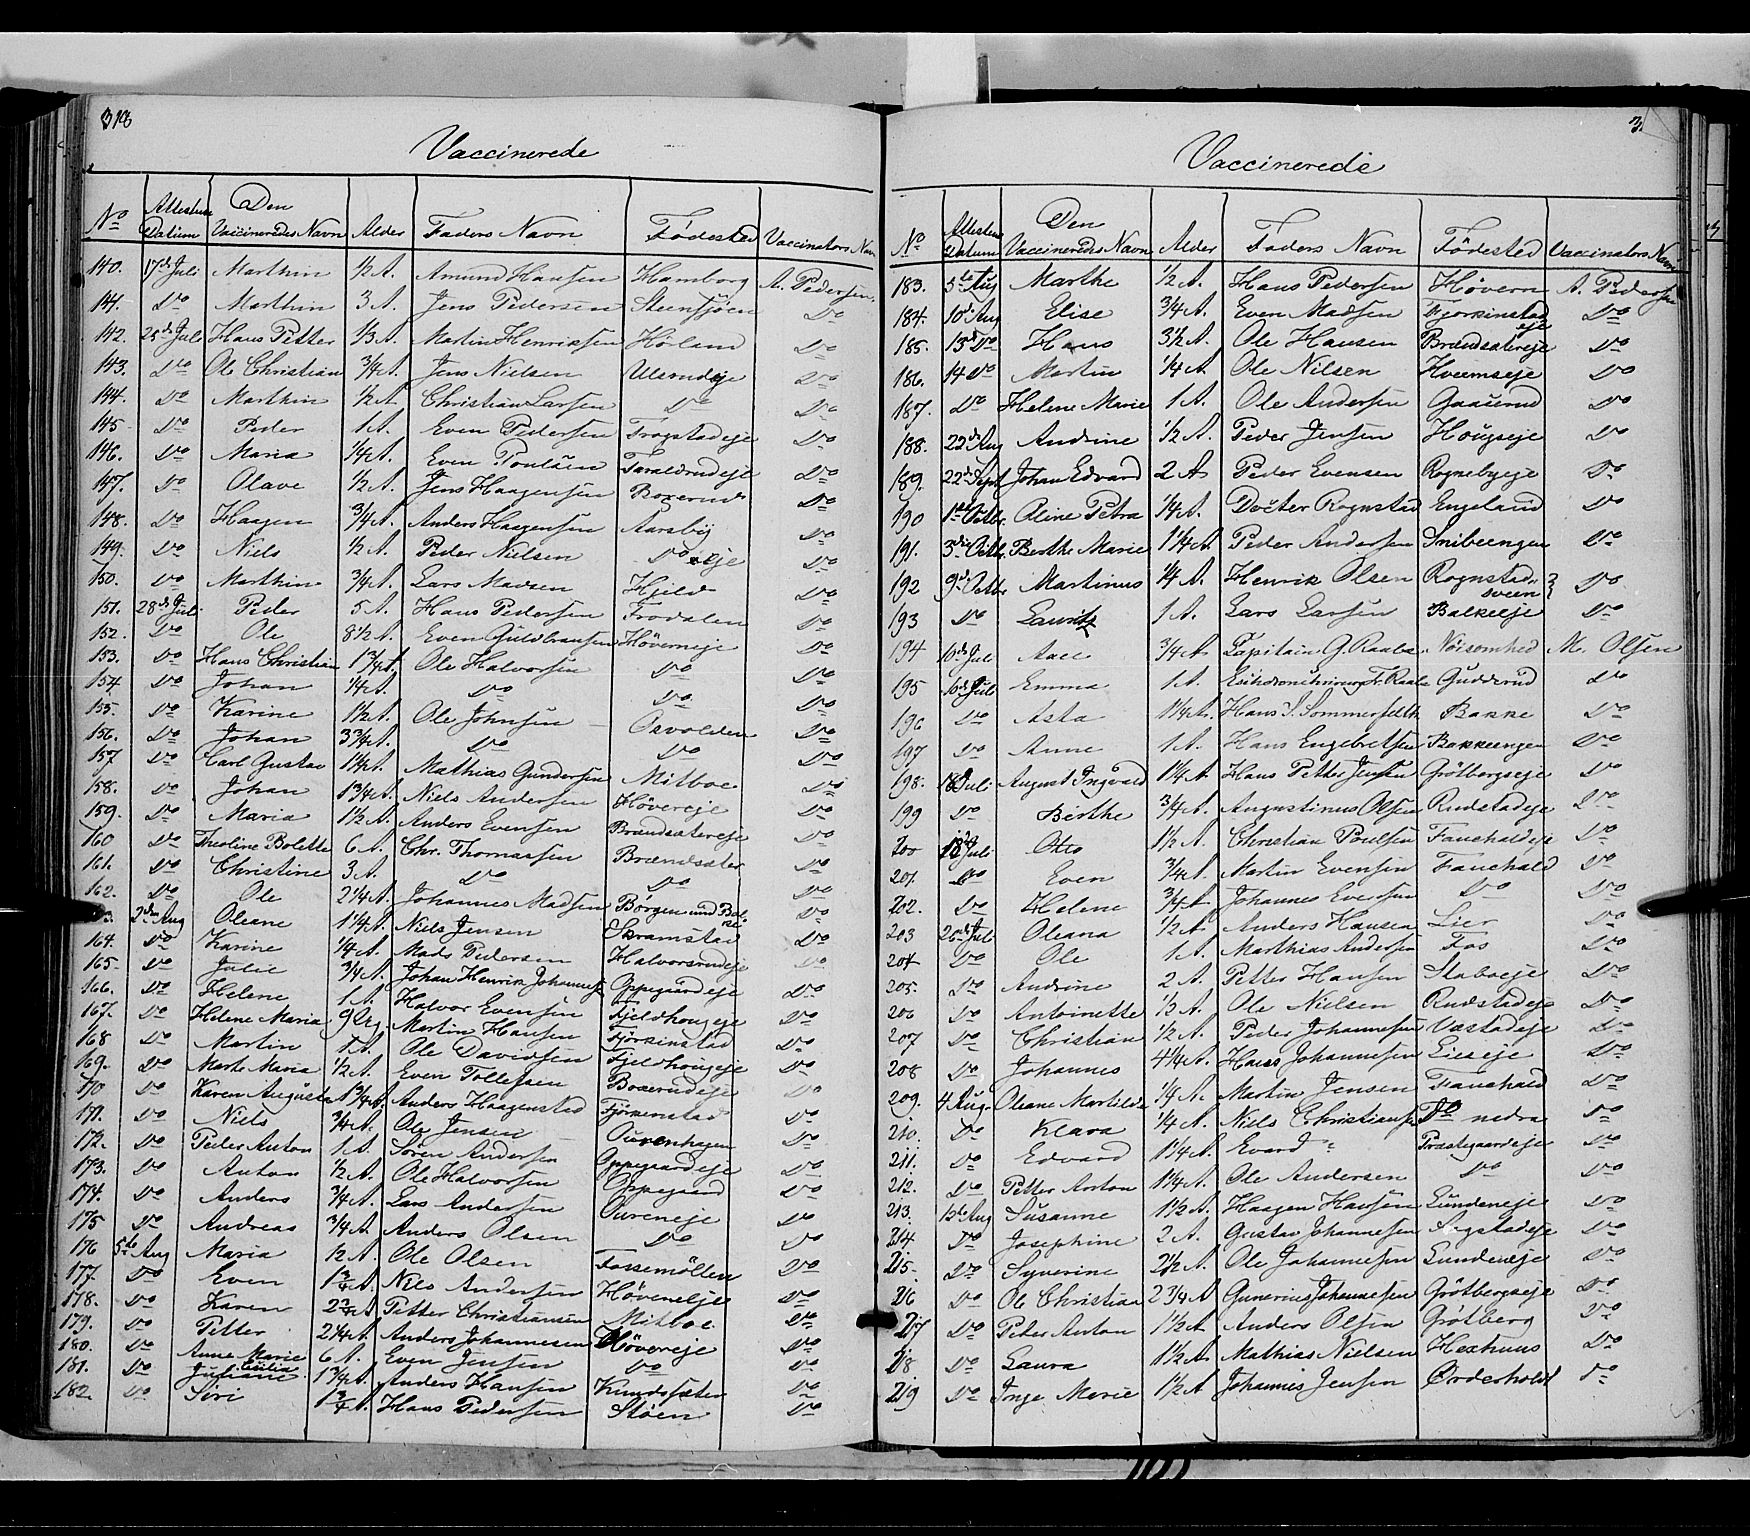 318
Vaccinerede
No Attestens Datum Den Vaccineredes Navn Alder Faders Navn Fødested Vaccinators Navn
140. 17de Juli Marthin 1/2 A. Amund Hansen Hamborg A. Pedersen
141. Do Marthin 3 A. Jens Pedersen Steensjöen Do
142. 25de Juli Hans Petter 1/3 A. Martin Henriksen Hölend Do
143. Do Ole Christian 3/4 A. Jens Nielsen Ulsrudeje Do
144. Do Marthin 1/2 A Christian Larsen Do Do
145. Do Peder 1 A. Even Pedersen Trogstadeje Do
146. Do Maria 1/4 A. Even Poulsen Taraldrudeje Do
147. Do Olave 1/2 A. Jens Haagensen Boxerud Do
148. Do Haagen 3/4 A. Anders Haagensen Aarsby Do
149. Do Niels 1/2 A. Peder Nielsen Do eje Do
150. Do Marthin 3/4 A. Lars Madsen Hjeld Do
151. 28de Juli Peder 5 A. Hans Pedersen Frodalen Do
152. Do Ole 8 1/2 A. Even Guldbransen Höverneje Do
153. Do Hans Christian 1 3/4 A. Ole Halvorsen Do Do
154. Do Johan 1/4 A. Do Do Do
155. Do Karine 1 1/2 A. Ole Johnsen Osvolden Do
156. Do Johan 3 3/4 A. Do Do Do
157 Do Karl Gustav 1 1/4 A. Mathias Gundersen Mitboe Do
158. Do Johan 1 3/4 A. Niels Andersen Hövereje Do
159. Do Maria 1 1/2 A. Anders Evensen Brændsætereje Do
160 Do Theoline Bolette 6 A. Chr. Thomassen Brændsæter Do
161. Do Christine 3 A. Do Do Do
162. Do Ole 2 1/4 A. Johannes Madsen Börgen Do
163. 2den Aug Oleane 1 1/4 A. Niels Jensen Skramstad Do
164. Do Karine 1/4 A. Mads Pedersen Halvorsrudeje Do
165. Do Julie 3/4 A. Johan Henrik Johannes Oppegaardeje Do
166. Do Helene 1 A. Halvor Evensen Fjeldhougeje Do
167. Do Helene Maria 9 Martin Hansen Fjörkinstad Do
168 Do Martin 1 A. Ole Davidsen Fjeldhougeje Do
169. Do Marte Maria 1/2 A. Even Tollefsen Boxerudeje Do
170 Do Karen Augusta 1 3/4 A. Anders Haagenstad Fjörkinstad Do
171. Do Niels 3/4 A. Ole Jensen Ourenhagen Do
172. Do Peder Anton 1 A. Sören Andersen Oppegaardeje Do
173. Do Anton 1/2 A. Ole Halvorsen Oppegaard Do
174. Do Anders 3/4 A. Lars Andersen Oureneje Do
175 Do Andreas 3/4 A. Anders Olsen Do Do
176 5te Aug Maria 1/2 A. Ole Olsen Fossemöllen Do
177. Do Even 1 3/4 A. Niels Andersen Höverneje Do
178. Do Karen 2 3/4 A Petter Christiansen Mitboe Do
179. Do Petter 2 1/4 A. Anders Johannesen Hövereje Do
180. Do Anne Marie Cecilia 6 A. Even Jensen Do Do
181. Do Juliane 1 3/4 A. Anders Hansen Knudssæter Do
182 Do Siri 1 3/4 A. Hans Pedersen Stöen Do
3
Vaccinerede
No Attestens Datum Den Vaccineredes Navn Alder Faders Navn Födested Vaccinators Navn
183. 5te Aug Marthe 1/2 A. Hans Pedersen Hövern A. Pedersen
184. 10de Aug Elise 3/4 A. Even Madsen Fjorkinstad eje Do
185. 13de Do Hans 3 1/2 A. Ole Hansen Brændsætereje Do
186. 14 Do Martin 1/4 A Ole Nilsen Kveemseje Do
187. Do Helene Marie 1 A. Ole Andersen Gaaserud Do
188. 22de Aug Andrine 1/2 A. Peder Jensen Hougseje Do
189. 22de Sept Johan Edvard 2 A Peder Evensen Rognebyeje Do
190 1ste Octbr. Oline Petra 1/4 A. Docter Rognstad Engeland Do
191. 3die Octbr. Berthe Marie 1 1/4 A. Peder Andersen Snibeengen Do
192 9de Octbr Martinus 1/4 A. Henrik Olsen Rognstad sveen Do
193 Do Lauritz 1 A. Lars Larsen Balkeeje Do
194 16de Juli Aase 3/4 A Capitain G. Raabe Nöisomhed M. Olsen
195 16de Juli Emma 1 A. Fr. Raabe Gudderud Do
196 Do Asta 1 1/4 A. Hans S. Sommerfeldth Bakke Do
197 Do Anne 1 A. Hans Engebretsen Bakkeengen Do
198. 18 Juli August Ingvald 1 1/4 A Hans Petter Jensen Grötbergseje Do
199 Do Berthe 3/4 A. Augustinus Olsen Rudstadeje Do
200 18de Juli Otto 1 1/2 A. Christian Poulsen Fauchaldeje Do
201. Do Even 3/4 A. Martin Evensen Fauchald Do
202. Do Helene 3/4 A Johannes Evensen Do Do
203 26de Juli Oleana 1/2 A. Anders Hansen Lier Do
204 Do Ole 1 A. Marthias Andersen Fos Do
205. Do Andrine 2 A. Petter Hansen Staboeje Do
206 Do Antoinette 1/3 A. Ole Nielsen Rudstadeje Do
207 Do Christian 1/2 A. Peder Johannesen Væstadeje Do
208 Do Johannes 4 1/4 A. Hans Johannesen Lieeje Do
209. 4 Aug. Oleane Martilde 1/4 A. Martin Jensen Fauchald Do
210. Do Klara 1/4 A. Niels Christiansen Do nedra Do
211. Do Edvard 1 1/4 A. Evard Præstegaardeje Do
212. Do Petter Anton 1 1/4 A. Ole Andersen Do Do
213. 12te Aug Susanne 1 1/2 A. Haagen Hansen Lundeneje Do
214 Do Josephine 2 A. Gustav Johannesen Do
215. Do Syverine 2 1/2 A. Ole Johannesen Lundeneje Do
216 Do Ole Christian 2 3/4 A Gunerius Johannesen Grötbergseje Do
217 Do Peter Anton 1 1/2 A Anders Olsen Grötberg Do
218 Do Laura 1 1/2 A. Mathias Nielsen Hexhuus Do
219 Do Inge Marie 1 1/2 A Johannes Jensen Orderholdt Do